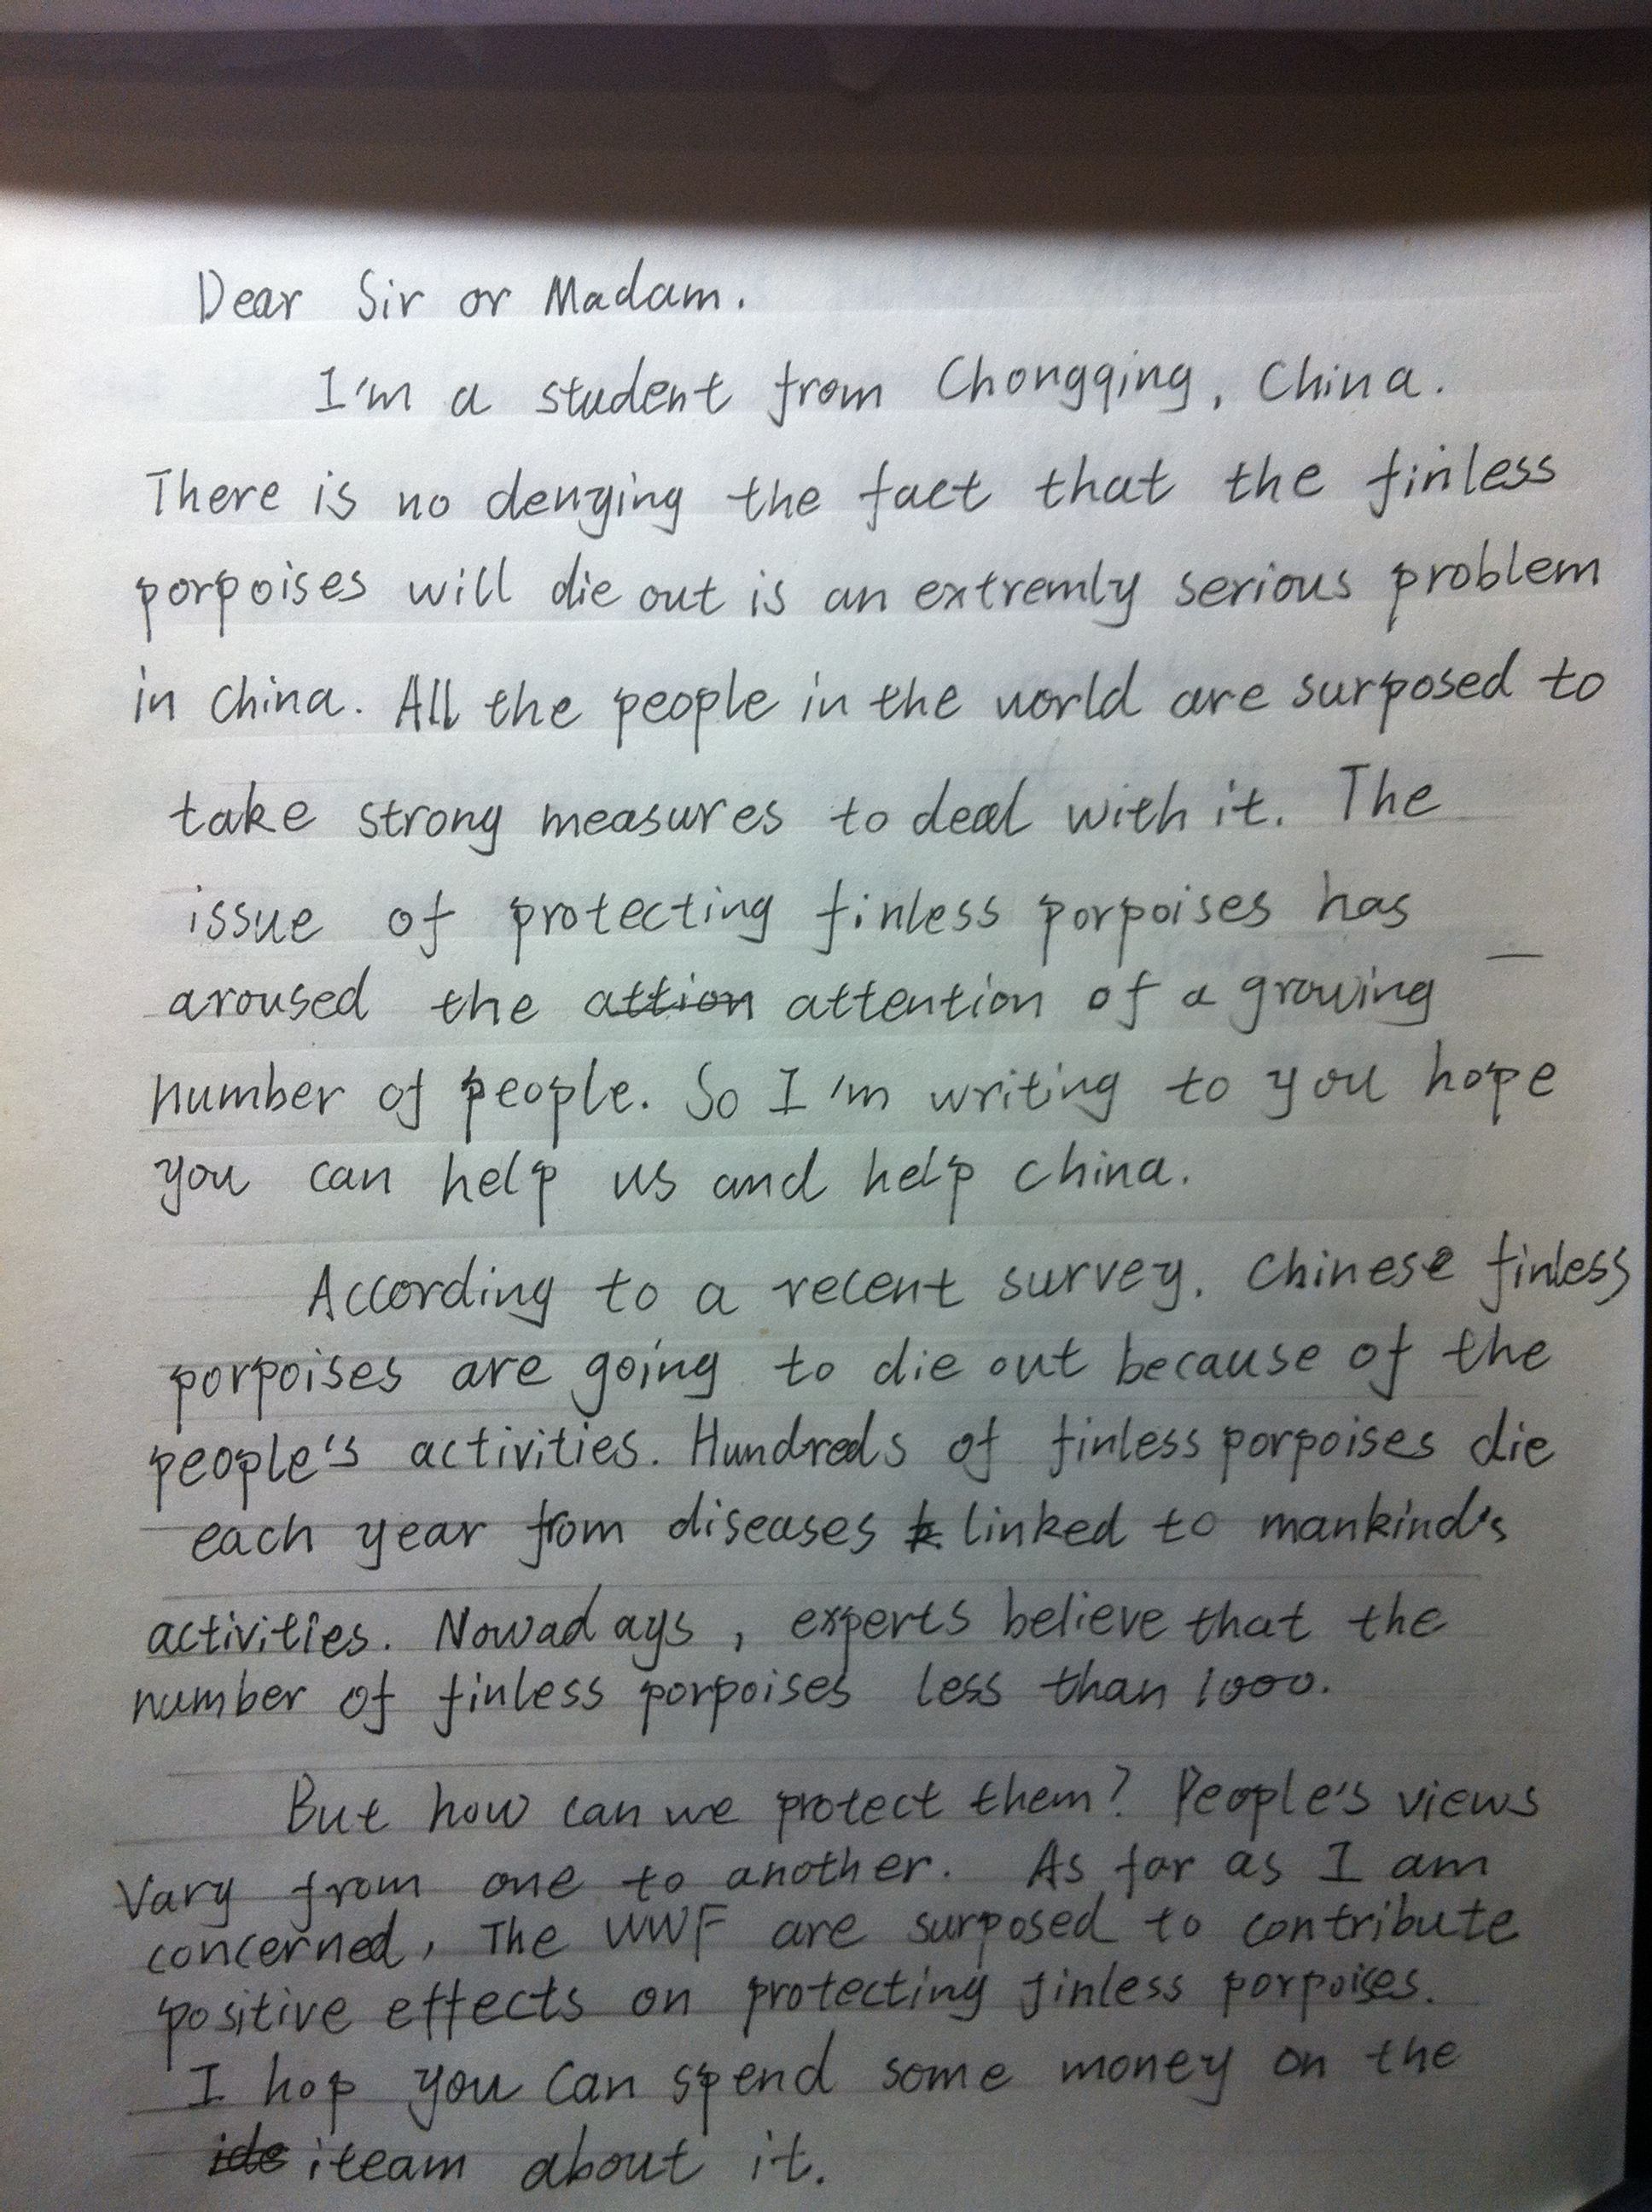 Dear Sir or Madam.
I'm a student from Chongqing, China.
There is no denying the fact that the finless
porpoises will die out is an extremly serious problem
in china. All the people in the world are surposed to
take strong measures to deal with it. The
issue of protecting finless porpoises has
aroused the attion attention of a growing
number of people. So I'm writing to you hope
you can help us and help china.
According to a recent survey. Chinese finless
porpoises are going to die out because of the
people's activities. Hundreds of finless porpoises die
each year from diseases linked to mankind's
activities. Nowadays, experts believe that the
number of finless porpoises less than 1000.
But how can we protect them? People's views
Vary from one to another. As far as I am
concerned, The WWF are surposed to contribute
positive effects on protecting finless porpoises.
I hop you can spend some money on the
ide iteam about it.